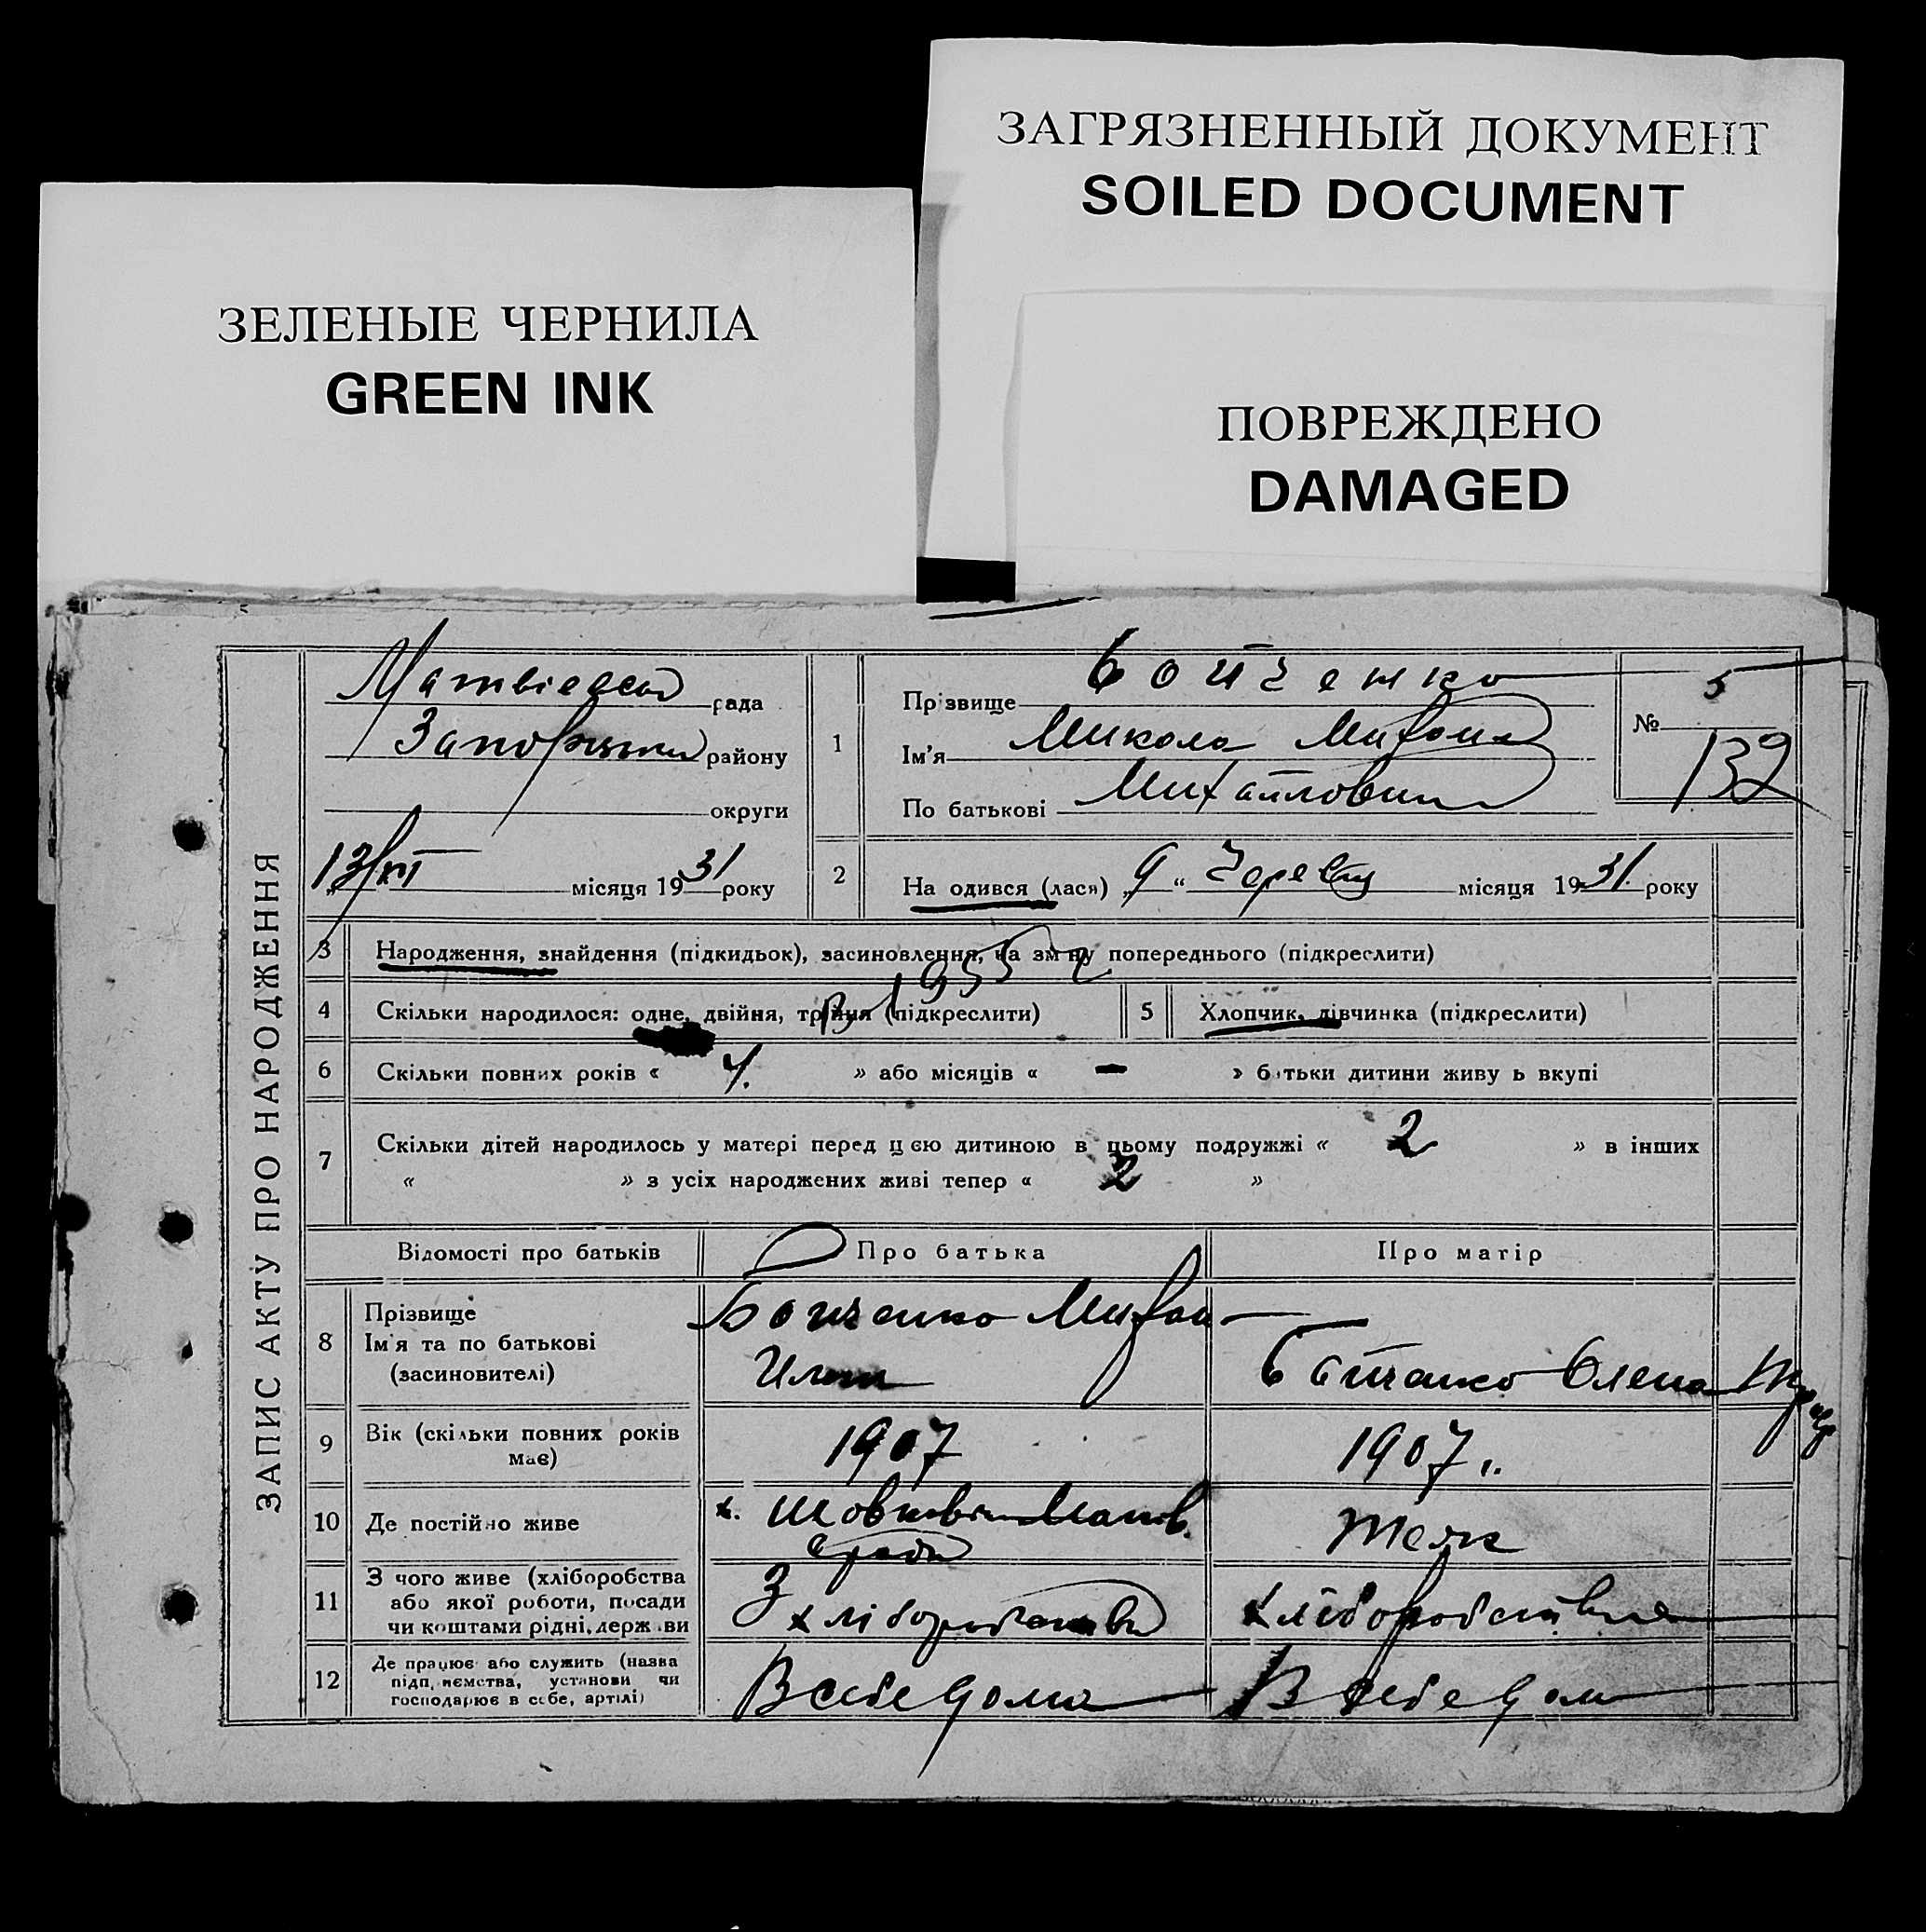 ЗАГРЯЗНЕННЫЙ ДОКУМЕНТ
SOILED DOCUMENT
ЗЕЛЕНЫЕ ЧЕРНИЛА
GREEN INK
ПОВРЕЖДЕНО
DAMAGED
ЗАПИС АКТУ ПРО НАРОДЖЕННЯ
рада
району
округи
13/VI місяця 1931 року
1
Прізвище Бойченко
Ім'я Микола
По батькові Михайлович
№ 5
132
2
На одився (лася) „9“ Червня місяця 1931. року
3 Народження, знайдення (підкидьок), засиновлення, на зміну попереднього (підкреслити)
1955
4 Скільки народилося: одне, двійня, трійня (підкреслити)
5 Хлопчик, дівчинка (підкреслити)
6 Скільки повних років « 4. » або місяців « — » батьки дитини живу ь вкупі
7 Скільки дітей народилось у матері перед цєю дитиною в цьому подружжі « 2 » в інших
« » з усіх народжених живі тепер « 2 »
Відомості про батьків Про батька Про матір
8 Прізвище
Ім'я та по батькові
(засиновителі)
Бойченко Михайло
Бойченко Олена
9 Вік (скільки повних років
має)
1907
1907
10 Де постійно живе
х.
Теж
11 З чого живе (хліборобства
або якої роботи, посади
чи коштами рідні, держави
З хліборобства
хліборобства
12 Де працює або служить (назва
підприємства, установи чи
господарює в себе, артілі)
В себе дома
В себе дома